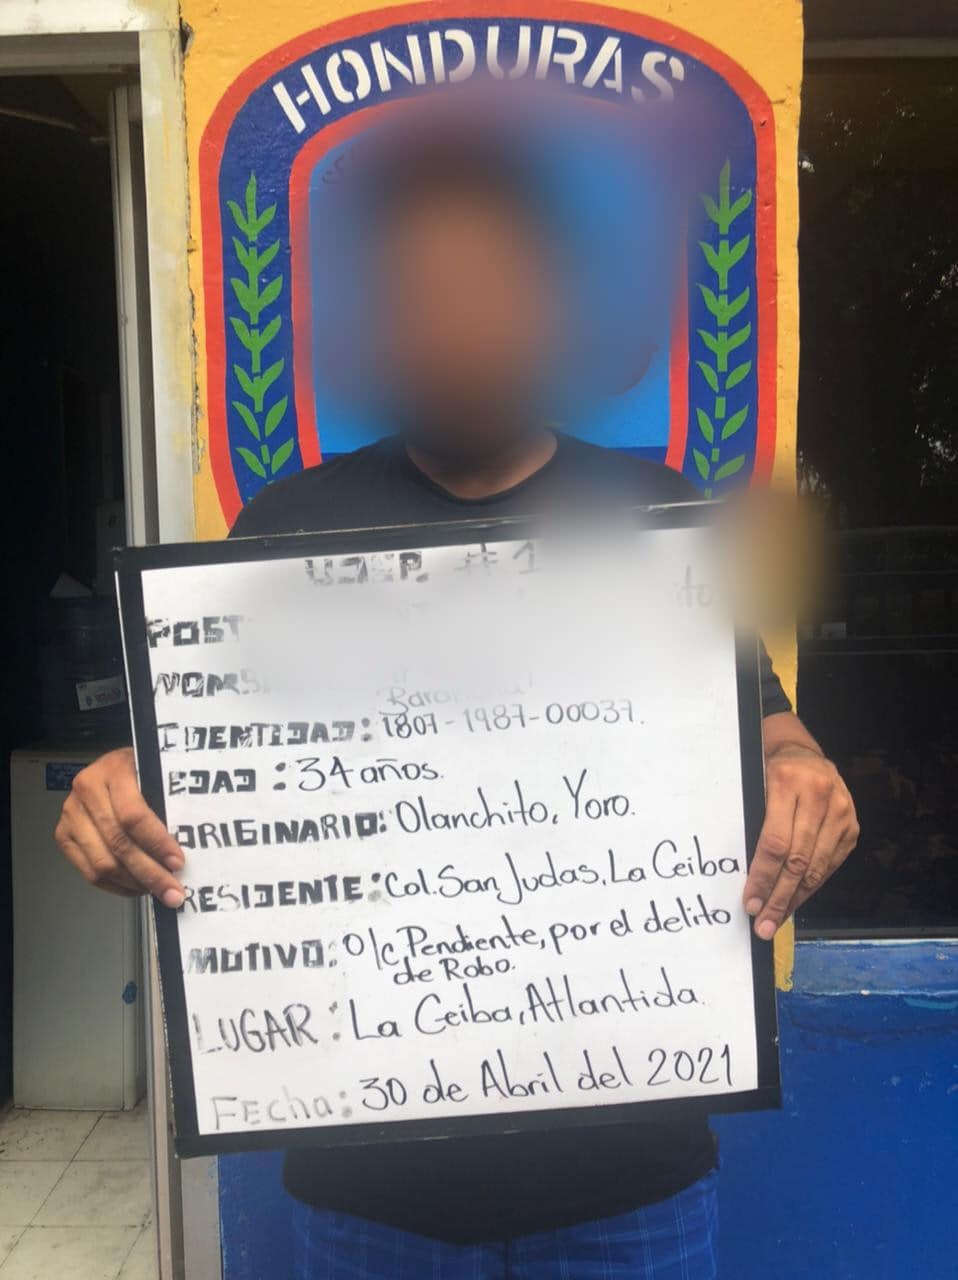 HONDURAS
UDEP. #1
POST
NOMB
IDENTIDAD: 1807-1987-00037.
EDAD: 34 años.
ORIGINARIO: Olanchito, Yoro.
RESIDENTE: Col. San Judas, La Ceiba
MOTIVO: O/C Pendiente, por el delito
de Robo.
LUGAR: La Ceiba, Atlantida.
FEcha: 30 de Abril del 2021